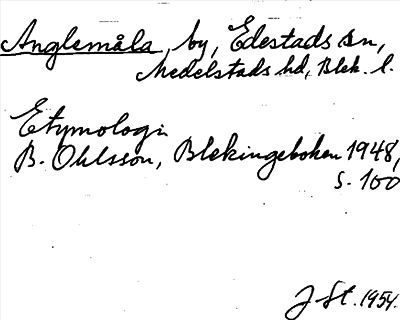 Anglemåla, by, Edestads sn,
Medelstads hd, Blek. l.
Etymologi
B. Ohlsson, Blekingeboken 1948,
s. 100
J. St. 1954.